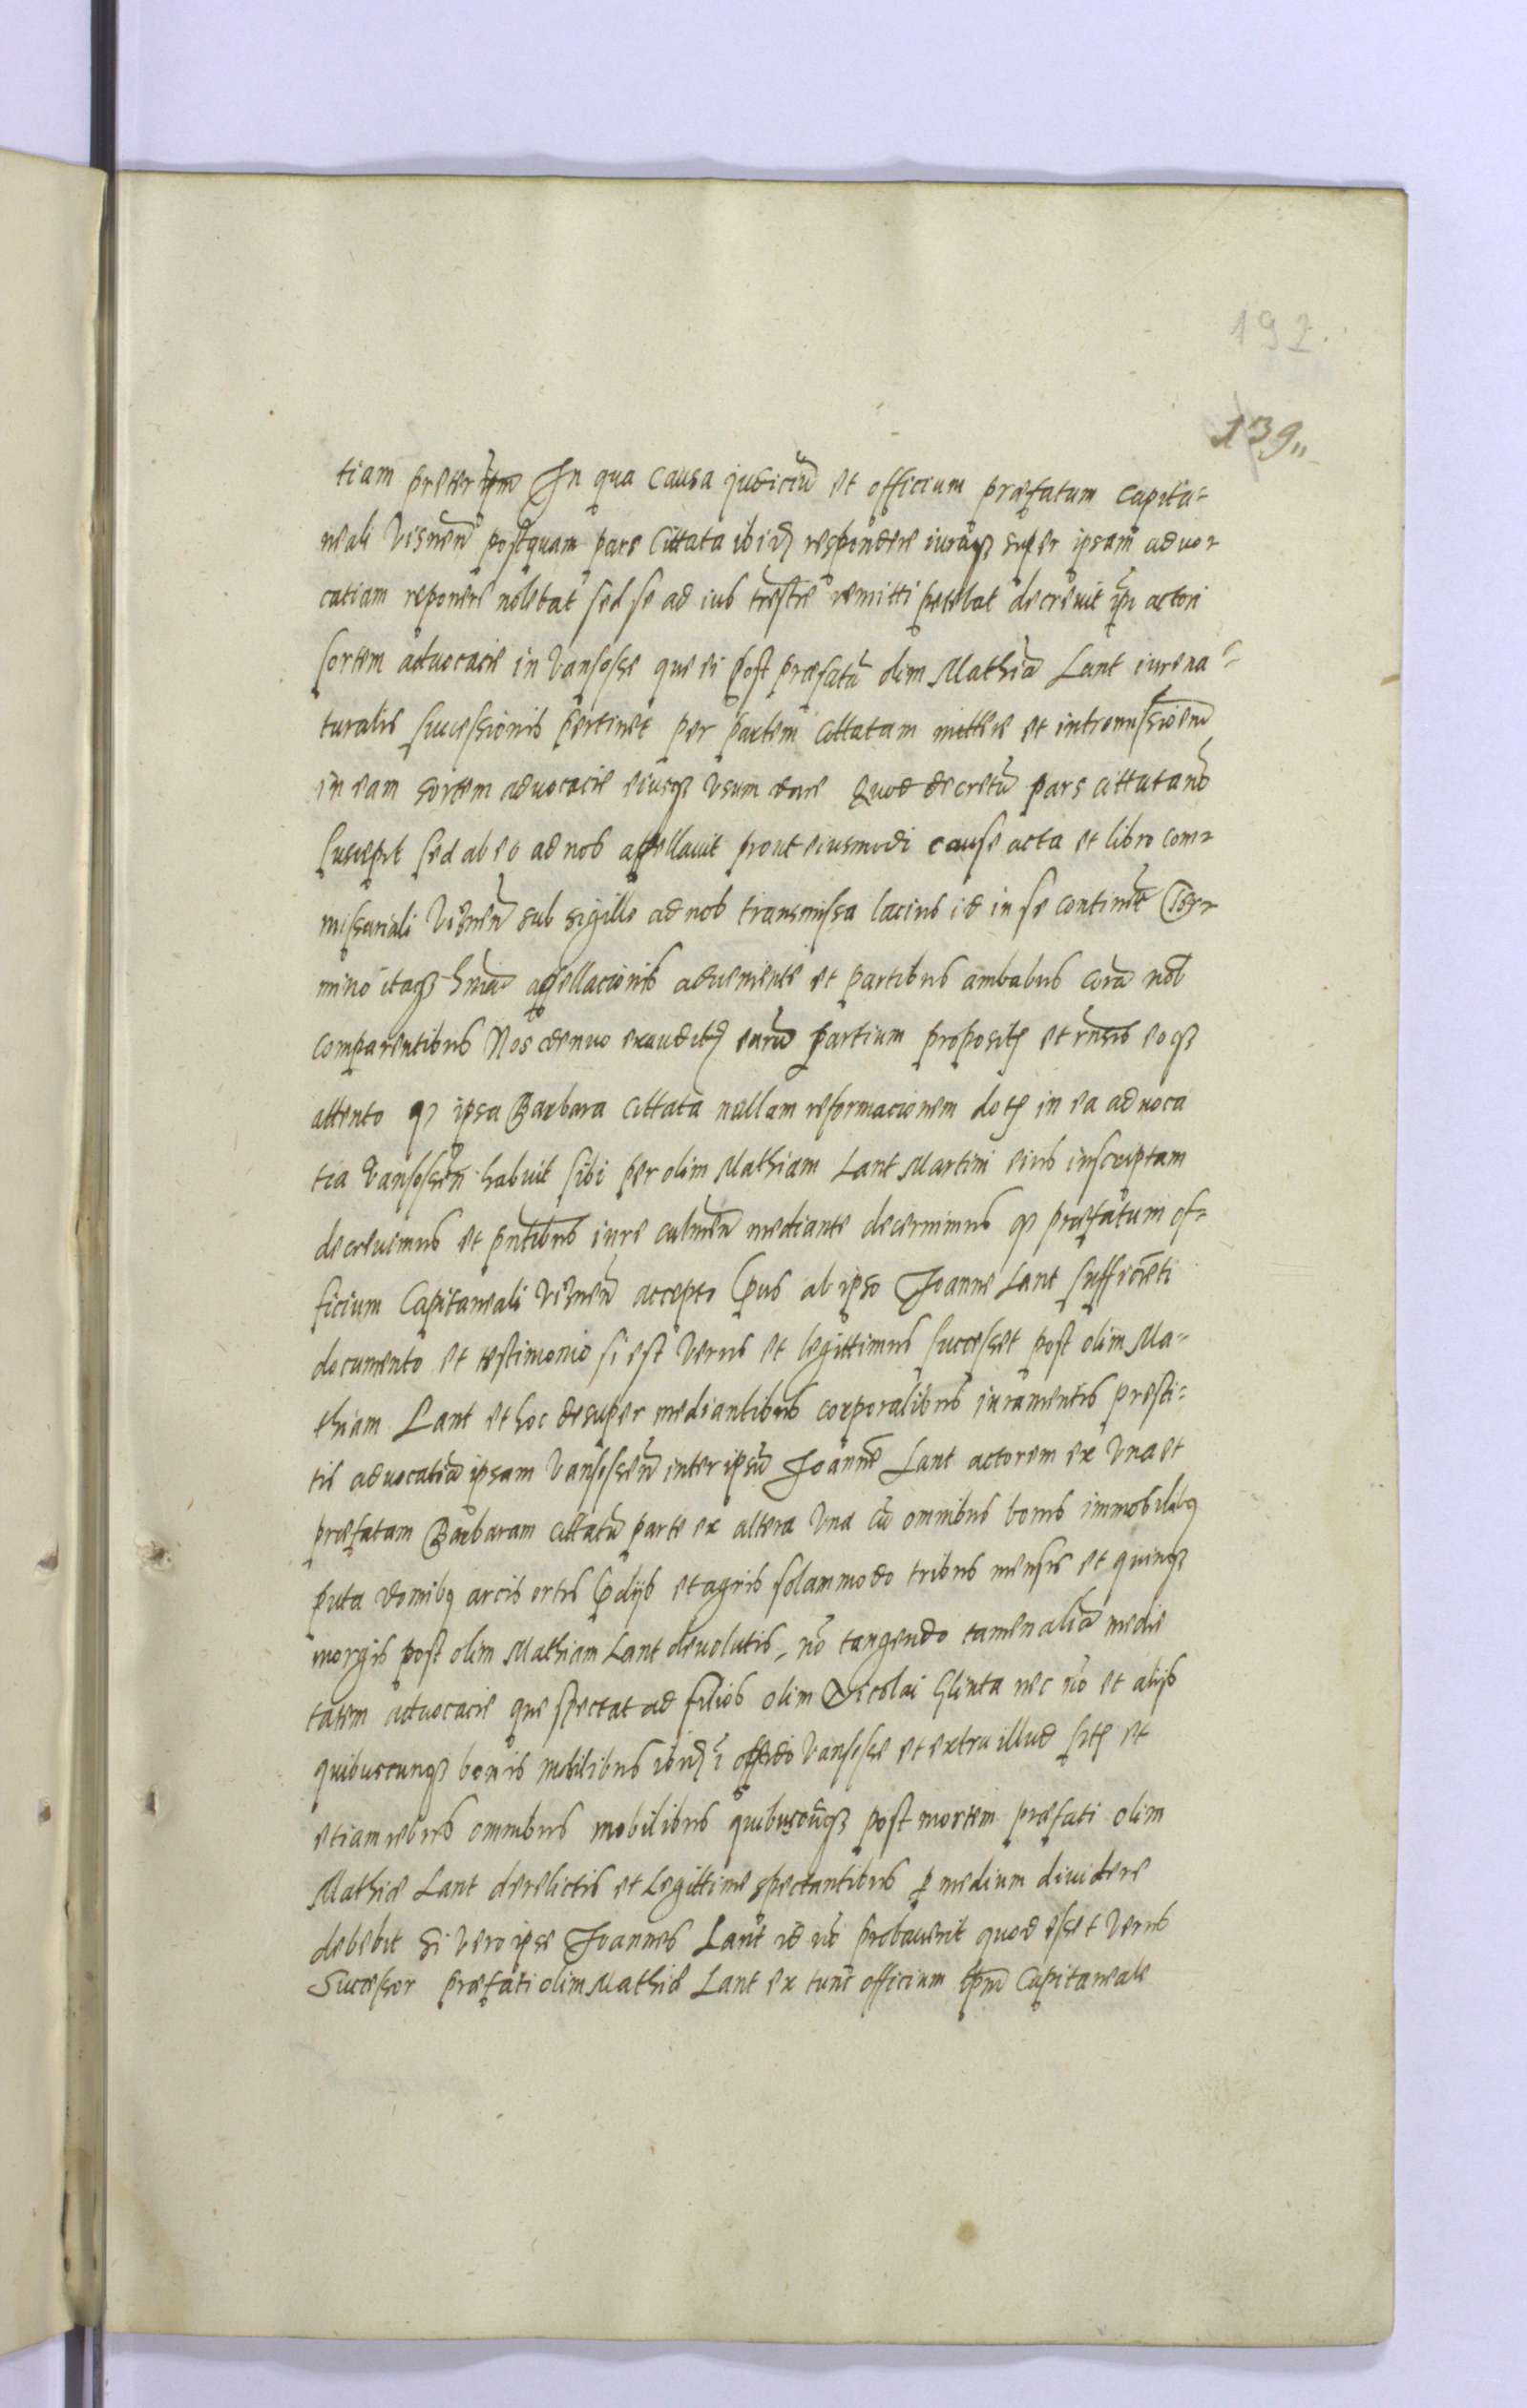 192.
139„
tiam preter ipm In qua causa judiciū et officium præfatum Capita=
neali Visnen̄ postquam pars Cittata ibid respondere iuraqȝ super ipsam aduo=
catiam reponere nolebat sed se ad ius trēstre remitti petebat decreuit ipi actori
sortem aduocacie in Vansosse que ei post præfatū olim Mathiā Lant iure na=
turalis successionis pertinet per partem cittatam mittere et intromissioem̄
in eam sortem aduocacie eiusqȝ vsum dare Quod decretū pars cittata nō
suscepit sed ab eo ad nos appellauit prout eiusmodi cause acta et libro com=
missariali Visnen̄ sub sigillo ad nos transmissa lacius id in se continēt Ter=
mino itaqȝ appellacionis adueniente et partibus ambabus corā nob
comparentibus Nos denuo exauditis earū partium propositis et rn̄sis eoqȝ
attento qȝ ipsa Barbara cittata nullam reformacionem dotis in ea aduoca
tia Vansossen̄ habuit sibi per olim Mathiam Lant Martini eius inscriptam
decreuimus et pn̄tibus iure culmen̄ mediante decernimus qȝ præfatum of=
ficium Capitaneali Visnen̄ accepto prius ab ipso Joanne Lant sufficiēti
documento et testimonio si est verus et legittimus successet post olim Ma=
thiam Lant et hoc desuper mediantibus corporalibus iuramentis presti=
tis aduocatiā ipsam Vansossen̄ inter ipsū Joannē Lant actorem ex vna et
præfatam Barbaram cittatā parte ex altera vna cū omnibus bonis immobilibȝ
puta domibȝ arcis ortis prdijs et agris solammodo tribus mensis et quinqȝ
morgis post olim Mathiam Lant deuolutis, nō tangendo tamen aliā medie
tatem aduocacie que spectat ad filios olim Nicolai Glinta nec nō et alijs
quibuscunqȝ bonis mobilibus ibid ī oppido Vansosse et extra illud sitis et
etiam rebus omnibus mobilibus quibuscūqȝ post mortem præfati olim
Mathiæ Lant derelictis et legittime spectantibus p medium diuidere
debebit Si vero ipse Joannes Lant id nō probauerit quod esset verus
Successor præfati olim Mathiæ Lant ex tunc officium ipm̄ Capitaneale